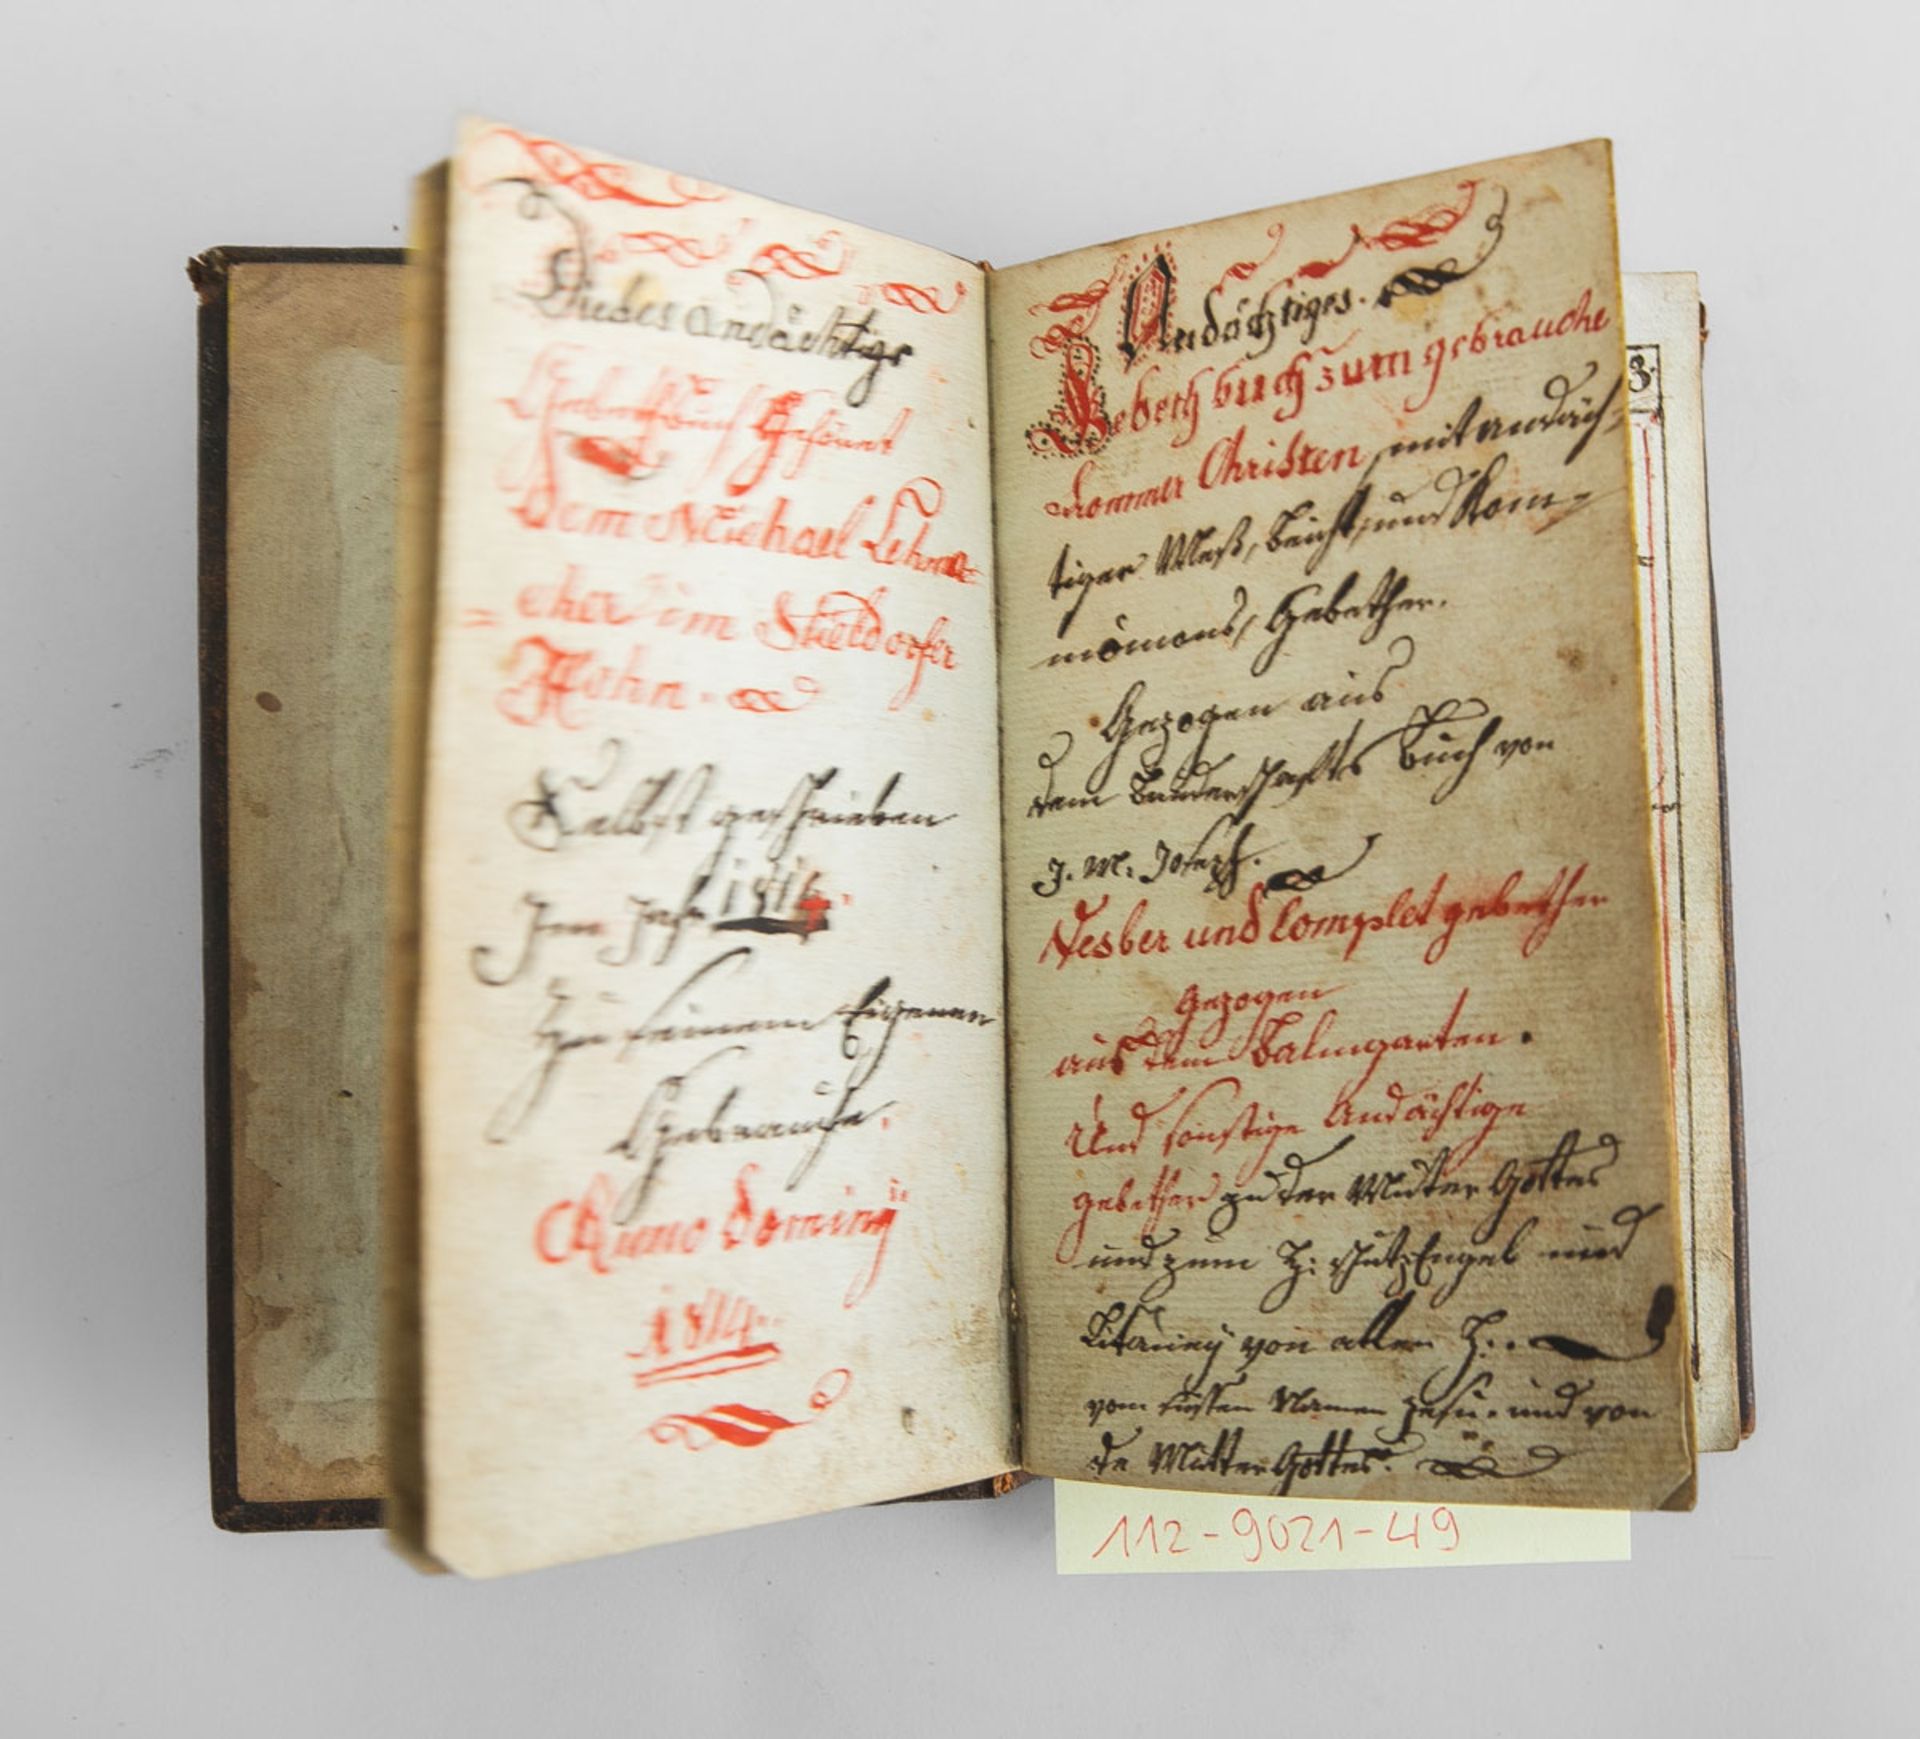 Dieses andächtige
Gebethbuch Gehöret
Dem Michael Lehma
cher im
Hohn.
Selbst geschrieben
Im Jahr 1814.
Zu seinem Eigenen
Gebrauche.
Anno Dominij
1814.
Andächtiges.
Gebeth buch zum gebrauche
frommer Christen, mit andäch=
tiger Meß, Beicht, und Kom=
mömons, Gebether.
Gezogen aus
dem Bruderschafts Buch von
J. M. Joseph.
Vesber und Complet gebether
Gezogen
aus dem Balmgarten.
Und sonstige Andächtige
gebether zu der Muter Gottes
und zum H: schutz Engel und
Litaniey von allen H:.
vom süssen Namen Jesu. und von
de Mutter Gottes.
3.
112-9021-49